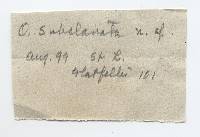 C. subclavata n. sp.
Aug. 99 St L.
Glatfelter 101